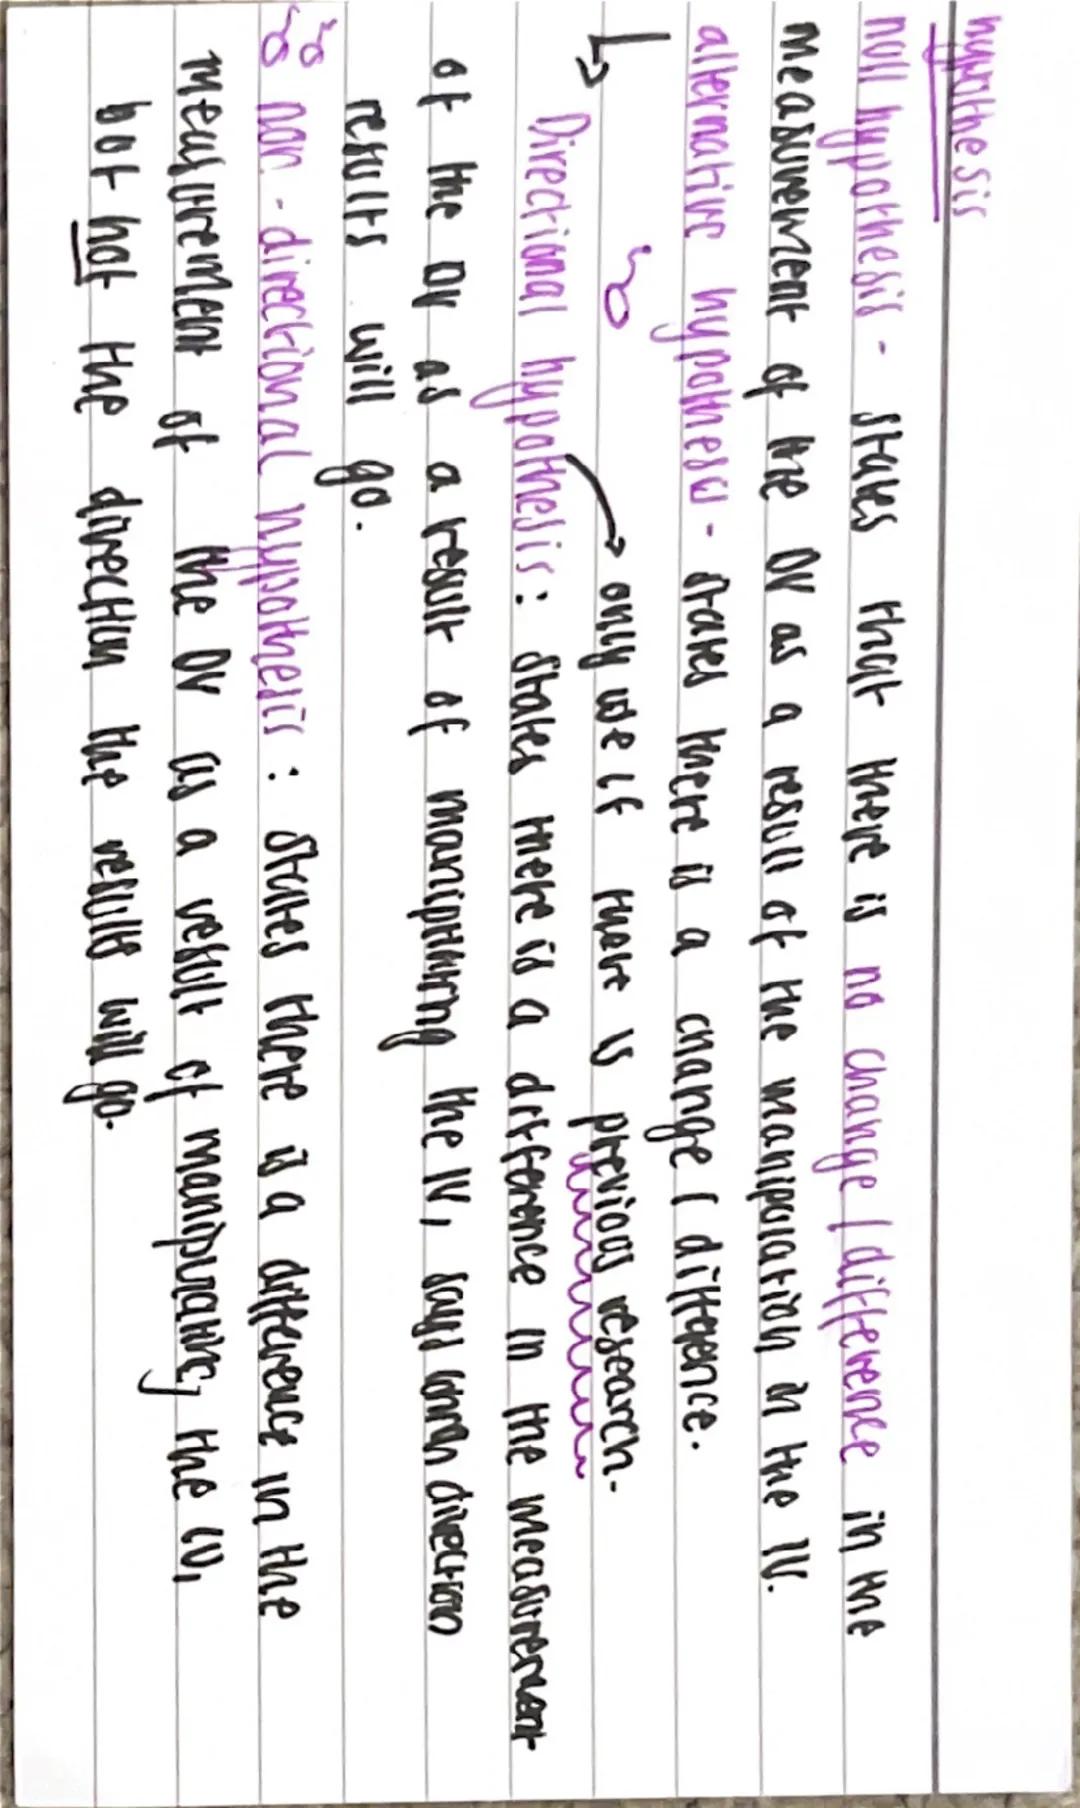 hypothesis
null hypothesis - states that there is no change / difference in the
measurement of the DV as a result of the manipulation in the IV.
alternative hypothesis - states there is a change / difference.
only use if there is previous research.
Directional hypothesis: states there is a difference in the measurement
of the DV as a result of manipulating the IV, says which direction
results will go.
non-directional hypothesis: states there is a difference in the
measurement of the DV as a result of manipulating the IV,
but not the direction the results will go.